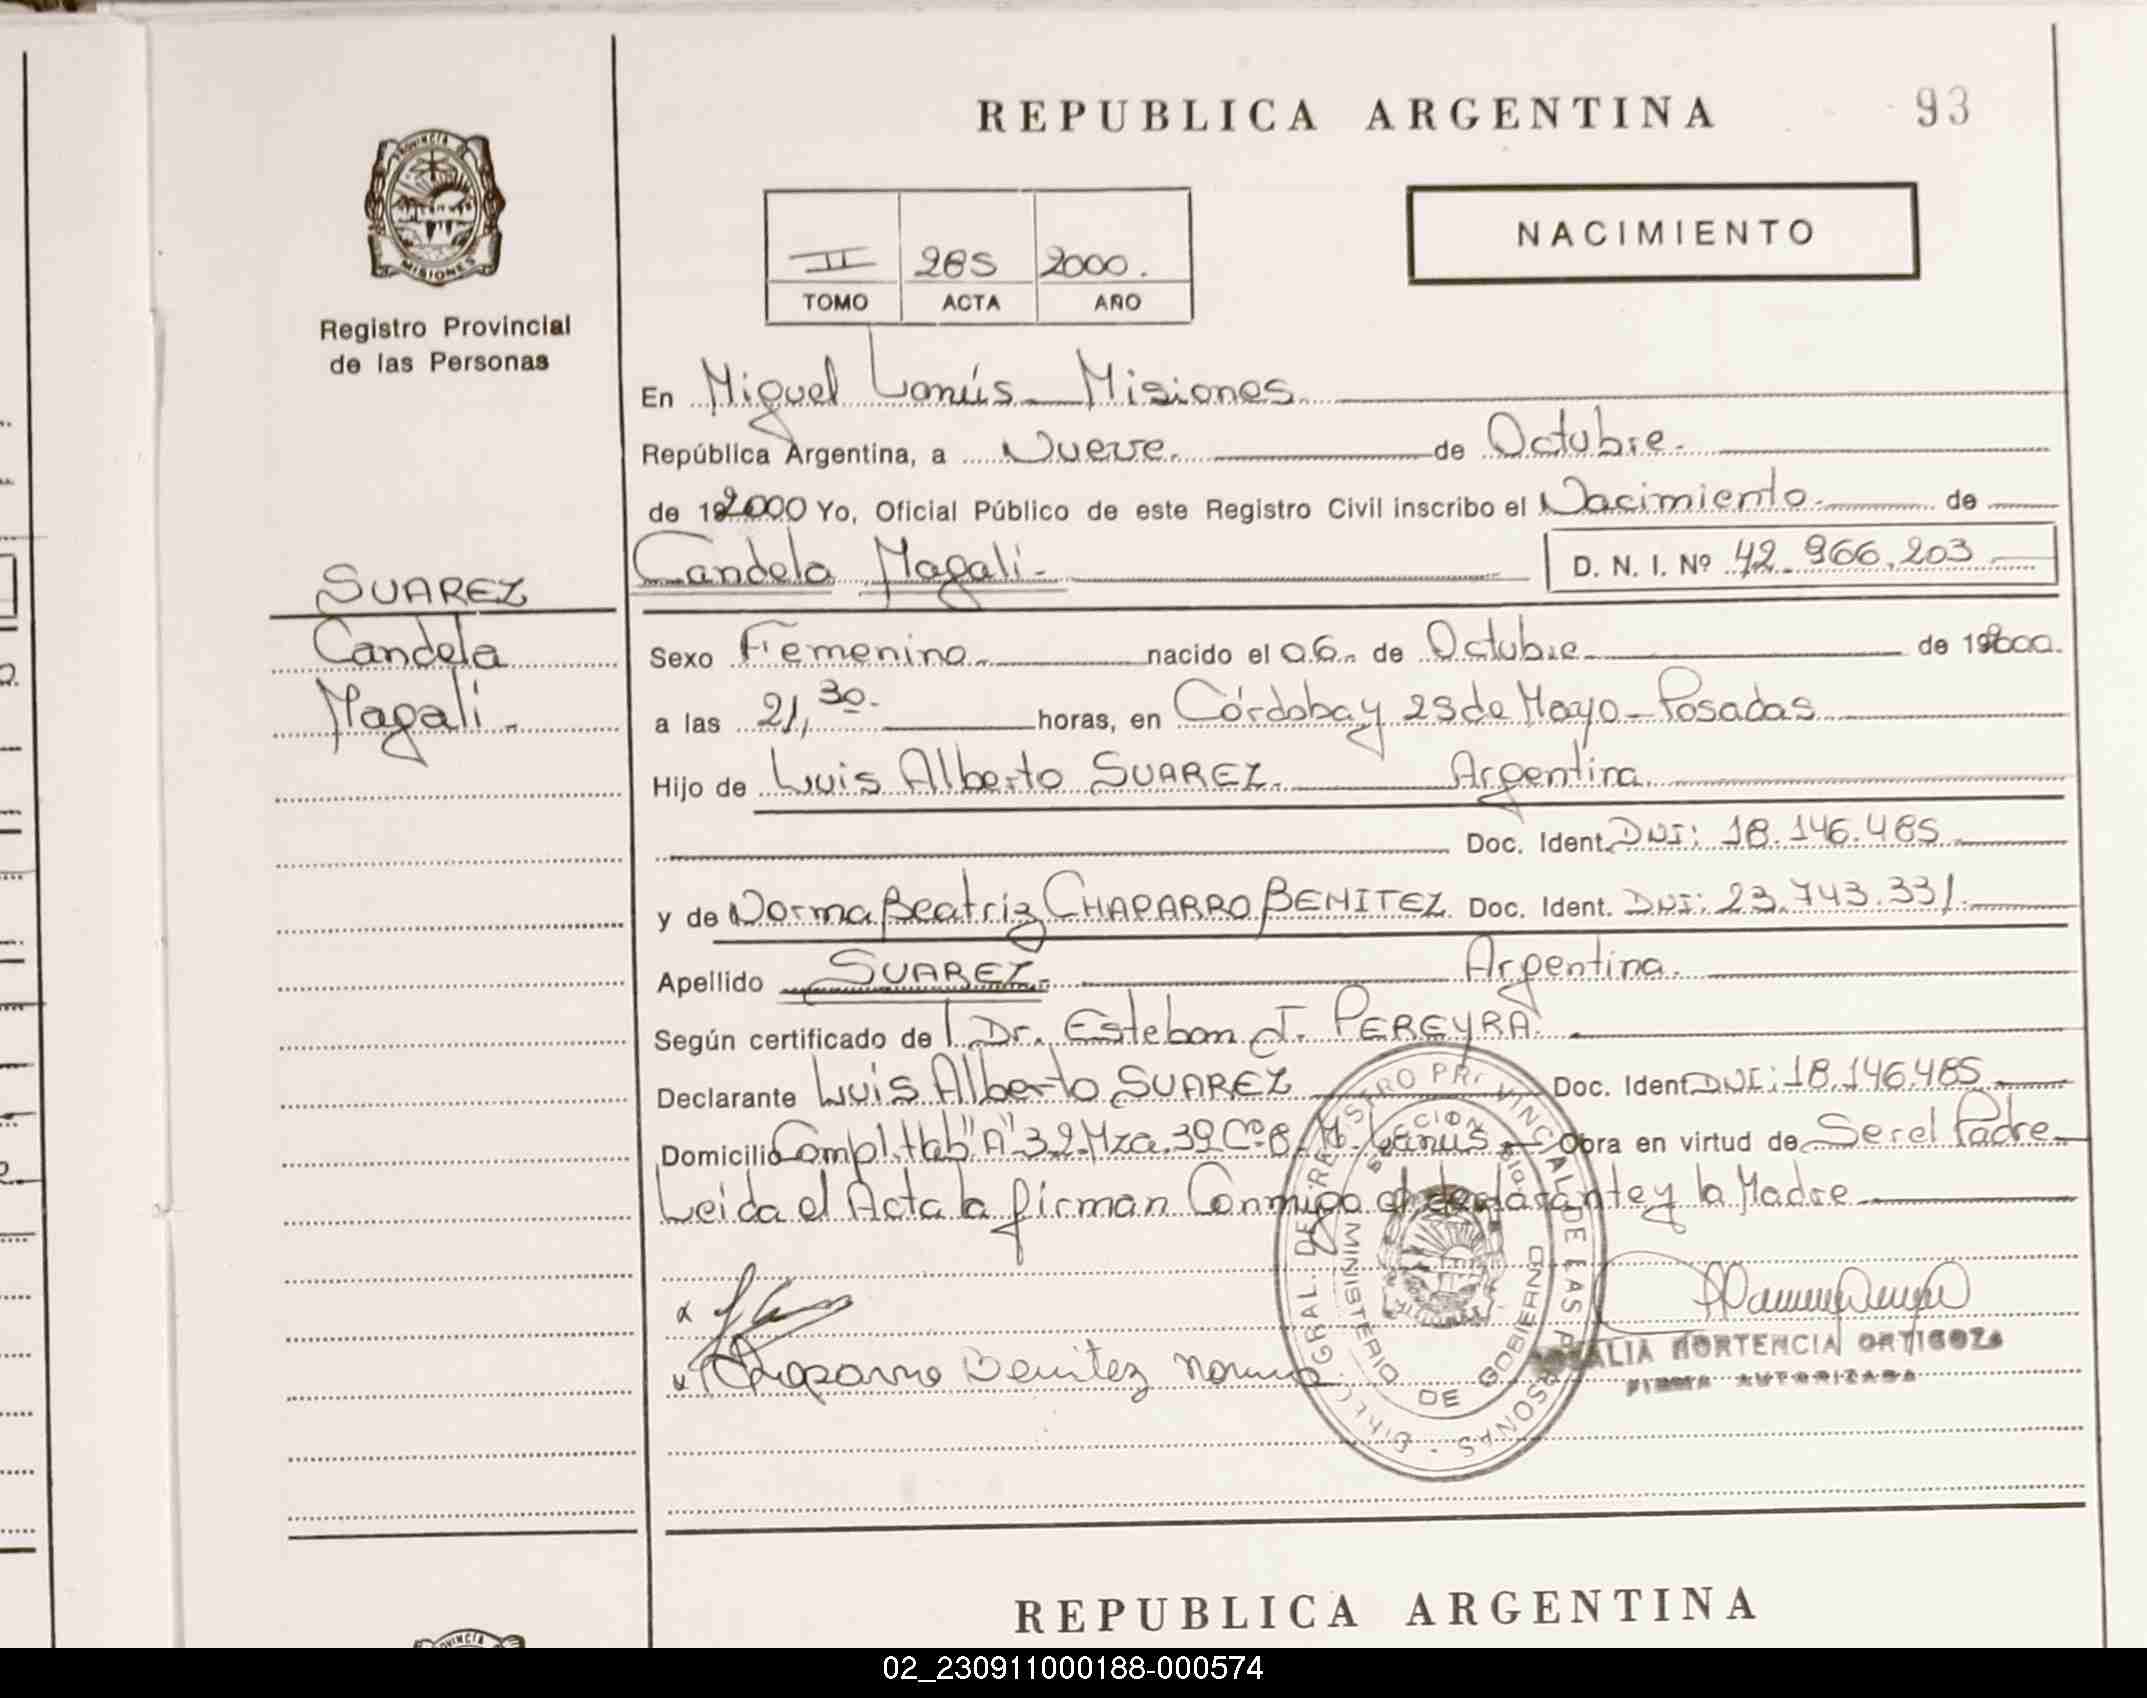 REPUBLICA ARGENTINA 93
PROVINCIA DE
MISIONES
Registro Provincial
de las Personas
NACIMIENTO
II 285 2000.
TOMO ACTA AÑO
En Miguel Lanús - Misiones
República Argentina, a Nueve de Octubre.
de 192000 Yo, Oficial Público de este Registro Civil inscribo el Nacimiento. de
Candela Magali- D. N. I. Nº 42.966.203
SUAREZ
Candela
Magali.-
Sexo Femenino nacido el 06 de Octubre de 192000.
a las 21,30. horas, en Córdoba y 25 de Mayo - Posadas
Hijo de Luis Alberto SUAREZ. Argentina.
Doc. Ident. DNI: 18.146.485
y de Norma Beatriz CHAPARRO BENITEZ Doc. Ident. DNI: 23.743.331.
Apellido SUAREZ. Argentina.
Según certificado de l Dr. Esteban J. PEREYRA.
Declarante Luis Alberto SUAREZ Doc. Ident. DNI: 18.146.485
Domicilio Compl. Hab "A" 3.2 Mza. 39 Cº 8. M. Lanús Obra en virtud de Ser el Padre
Leida el Acta la firman Conmigo el declarante y la Madre
Chaparro Benitez Norma
GRAL. DE REGISTRO PROVINCIAL DE LAS PERSONAS
MINISTERIO DE GOBIERNO
HORTENCIA ORTIGOZA
FIRMA AUTORIZADA
REPUBLICA ARGENTINA
02_230911000188-000574